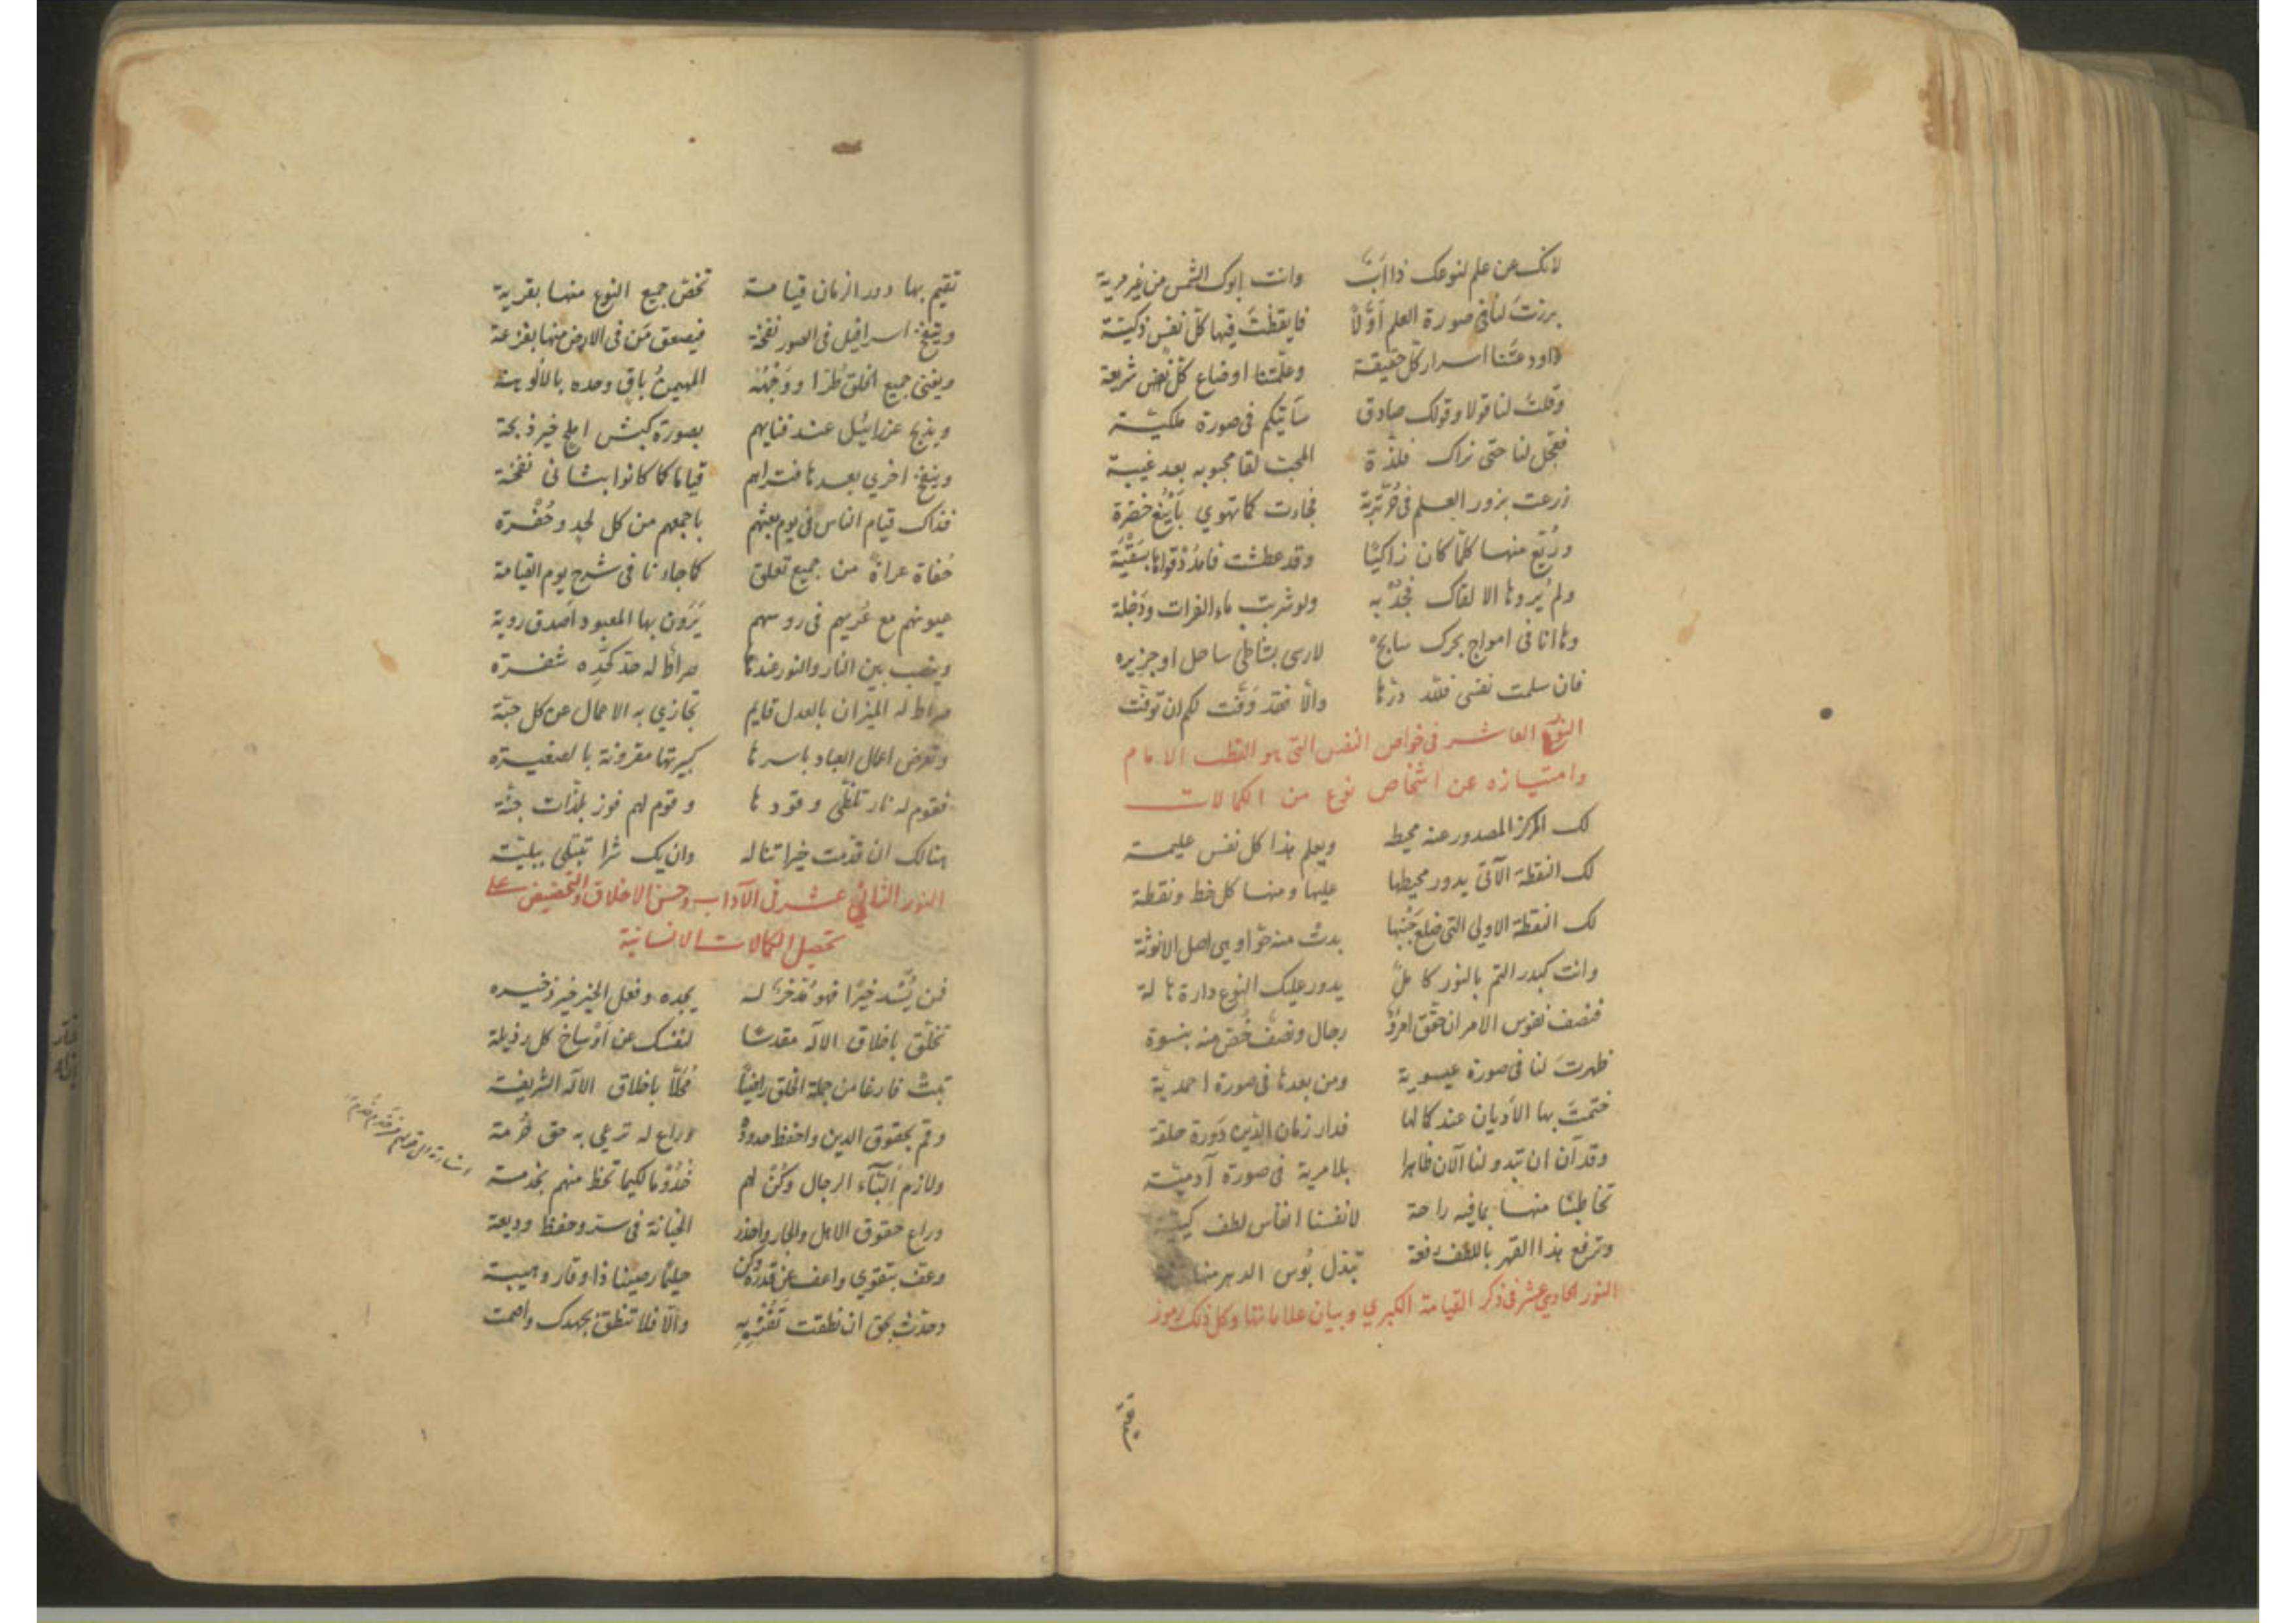 لانك عن علم لنوعك ذا اَبٌ وانت ابوك الشمس من غير مرية
برزتَ لنا فى صورة العلم اَوّلاً فايقظتَ فيها كلّ نفس زكيّة
واودعتَنا اسرار كلّ حقيقة وعلّمتنا اوضاع كلّ شرعة
وقلتَ لنا قولا وقولك صادق سَآتيكم فى صورة ملكيّة
فعجّل لنا حتى نراك فلذّة المحب لقا محبوبه بعد غيبة
زرعت بزور العلم فى حُرّ تربة فجاءت كما تهوي بَاَيْنع خضرة
ورُيّع منها كلّما كان زاكيًا وقد عطشت فامدُدْ قواها بسَقْيَة
ولم يُروها الا لقاك فجُدْ به ولو شربت ماء الفرات ودَجلة
وها انا فى امواج بحرك سابحٌ لارسى بشاطئ ساحل او جزيره
فان سلمت نفسى فللّه درّها والّا فقد وَفَّت لكم ان توفّت
النور العاشر فى خواص النفس التى هو القطب الامام
وامتيازه عن اشخاص نوع من الكمالات
لك المركز المصدور عنه محيط ويعلم هذا كل نفس عليمة
لك النقطة الآتى يدور محيطها عليها ومنها كل خط ونقطة
لك النقطة الاولى التى ضلع جَنْبها بدتْ منه حوّا وهى اصل الانوثة
وانت كبدر التم بالنور كاملٌ يدور عليك النوع دارة هالة
فنصف نفوس الامر ان حقّق امرؤٌ رجال ونصفٌ خُص منه بنسوة
ظهرتَ لنا فى صورة عيسوية ومن بعدها فى صورة احمدية
ختمتَ بها الاَديان عند كمالها فدار زمان الدين دَورة حلقة
وقد آن ان تبدو لنا الآن ظاهرا بلا مرية فى صورة آدميّة
تخاطبُنا منها بما فيه راحة لانفسنا انفاس لطف
وترفع هذا القهر باللطف رفعة تبدّل بُوس الدهر منها
النور الحادي عشر فى ذكر القيامة الكبري وبيان علاماتها وكل ذلك رموز
تقيم بها دور الزمان قيامة تخصّ جميع النوع منها بقربة
وينفخ اسرافيل فى الصور نفخة فيصعق مَن فى الارض منها بفزعة
ويفنى جميع الخلق طُرّا ووَجْهُه المهيمنُ باقٍ وحده بالالوهة
ويذبح عزرائيل عند فنايهم بصورة كبش املح خير ذبحة
وينفخ اخري بعدها فتراهم قياما كما كانوا بثانى نفخة
فذاك قيام الناس فى يوم بعثهم باجمعهم من كل لحد وحُفْرة
حُفاة عراةً من جميع تعلّق كما جاءنا فى شرح يوم القيامة
عيونهم مع عُريهم فى روسهم يَرَون بها المعبود اَصدق روية
وينصب بين النار والنور عندها صراطٌ له حدّ كحدّه شفرة
صراط له الميزان بالعدل قايم تجازي به الاعمال عن كل حبّة
وتعرض اعمال العباد باسرها كبيرتها مقرونة بالصغيرة
فقوم له نار تلظّى وقودها وقوم لهم فوز بلذّات جنّة
هنالك ان قدّمت خيرا تناله وان يك شرا تبتلى ببليّة
النور الثانى عشر فى الآداب وحسن الاخلاق والتحضيض على
تحصيل الكمالات الانسانية
فمن يُسْد خيرًا فهو مُدّخرٌ له يجده وفعل الخير خير ذخيره
تخلّق باخلاق الاله مقدسًا لنفسك عن اَوْساخ كل رذيلة
تبتْ فارغا من جملة الخلق راضياً مُحلًّا باخلاق الاله الشريفة
وقم بحقوق الدين واحفظ حدودهُ وراع له ترعى به حق حُرمة
ولازم اَلبّآء الرجال وكُنْ لهم خَدُوما لكيما تحظ منهم بخدمة
وراع حقوق الاهل والجار واحذر الخيانة فى ستر وحفظ وديعة
وعفّ بتقوى واعف عن قدرة وكن حليمًا رصينًا ذا وقار وهيبة
وحدّث بحق ان نطقت تَفُزْ بِهِ والّا فلا تنطق بجهدك واصمت